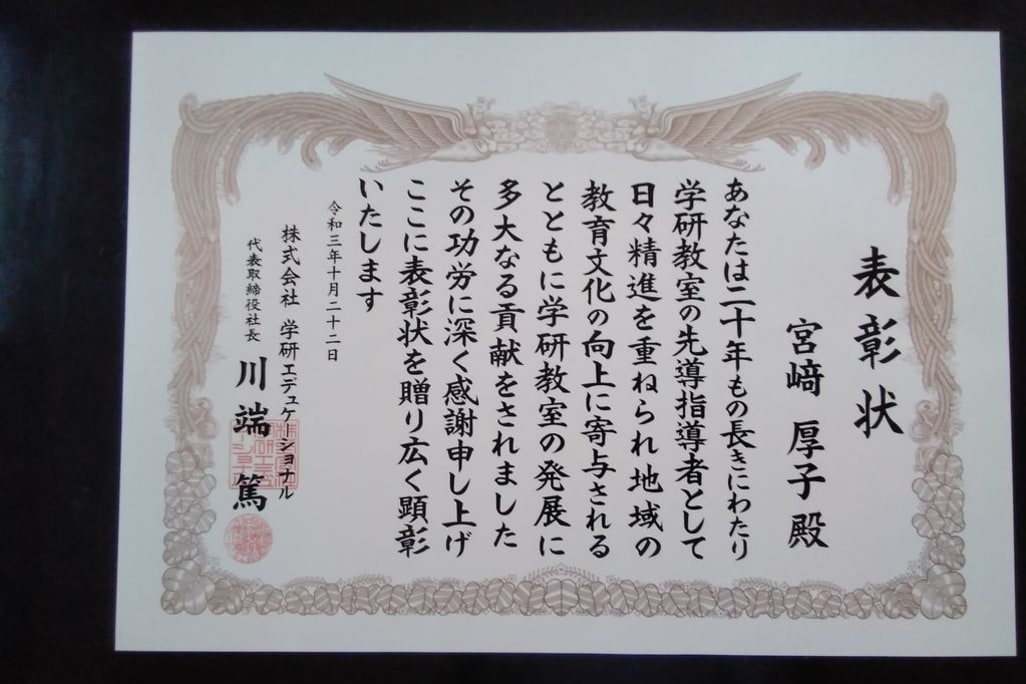 表彰状
宮﨑 厚子 殿
あなたは二十年もの長きにわたり
学研教室の先導指導者として
日々精進を重ねられ地域の
教育文化の向上に寄与される
とともに学研教室の発展に
多大なる貢献をされました
その功労に深く感謝申し上げ
ここに表彰状を贈り広く顕彰
いたします
令和三年十月二十二日
株式会社 学研エデュケーショナル
代表取締役社長 川端 篤